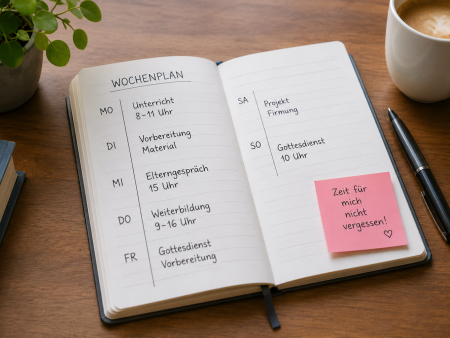 WOCHENPLAN
MO
Unterricht
8–11 Uhr
DI
Vorbereitung
Material
MI
Elterngespräch
15 Uhr
DO
Weiterbildung
9–16 Uhr
FR
Gottesdienst
Vorbereitung
SA
Projekt
Firmung
SO
Gottesdienst
10 Uhr
Zeit für
mich
nicht
vergessen!
♡